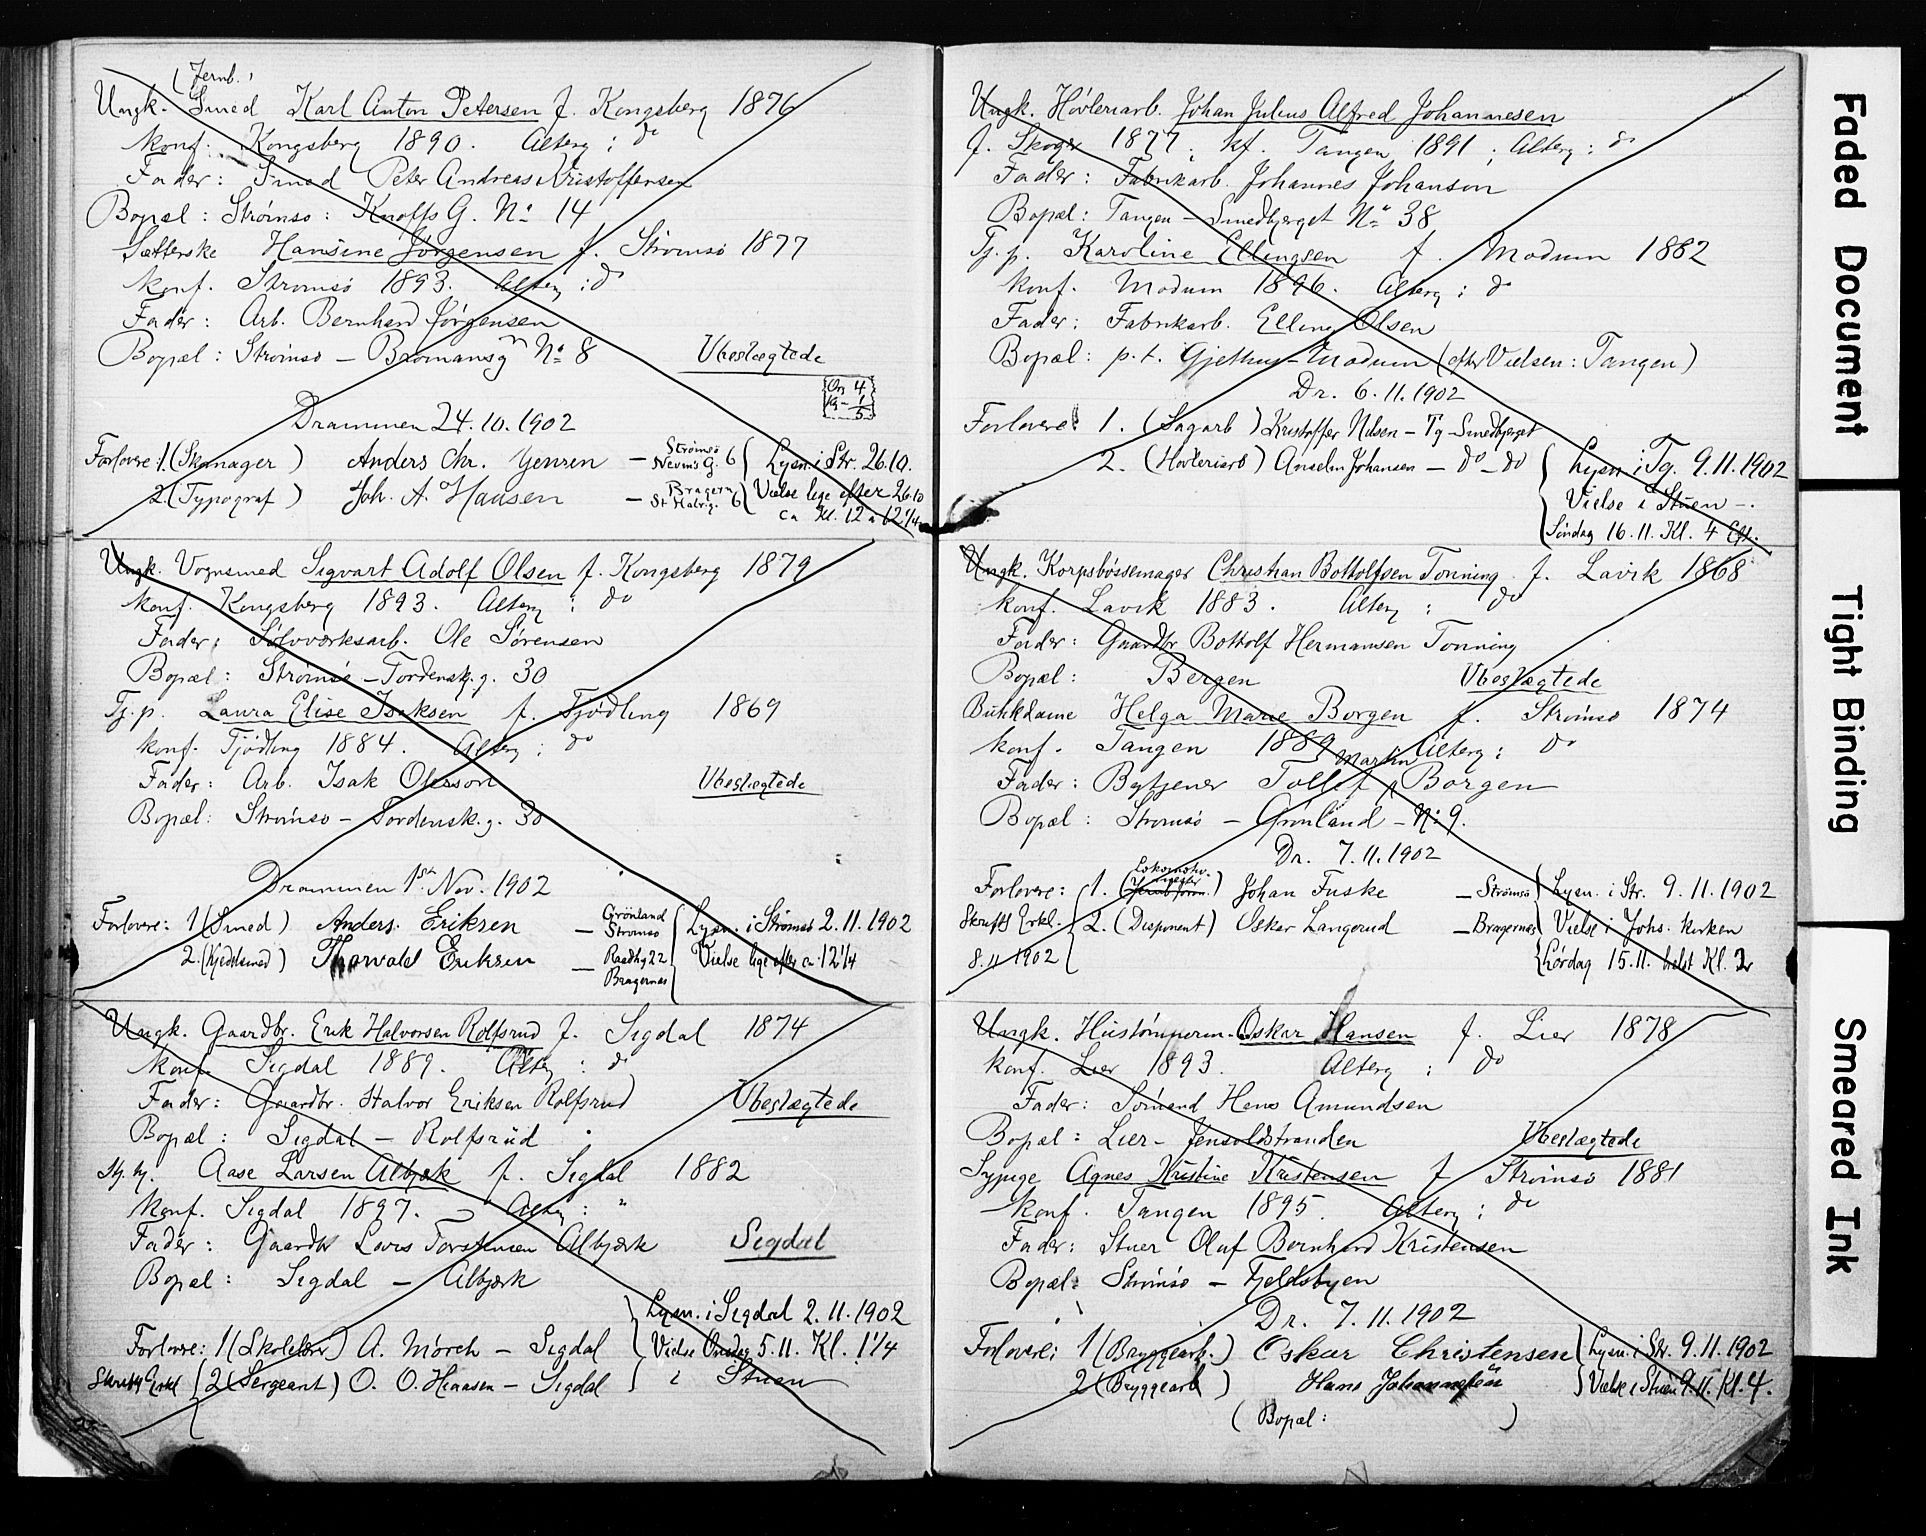 (Jernb.)
Ungk. Smed Karl Anton Petersen f. Kongsberg 1876
konf. Kongsberg 1890. Alterg: do
Fader: Smed Peter Andreas Kristoffersen
Bopæl: Strømsø: Knoffs G. No 14
Sætterske Hansine Jørgensen f. Strømsø 1877
konf. Strømsø 1893. Alterg: do
Fader: Arb. Bernhard Jørgensen
Bopæl: Strømsø – Bromansgn No 8 Ubeslægtede
Or 4
Kg – 1
5
Drammen 24.10.1902
Forlovere: 1. (Skomager) Anders Chr. Jensen – Strømsø Nevins G. 6 { Lysn. i Str. 26.10.
2. (Typograf) Joh. A. Hansen – Bragern St Halvg. 6 { Vielse lige efter 26.10
ca Kl. 12 a 12¼
Ungk. Vognsmed Sigvart Adolf Olsen f. Kongsberg 1879
konf. Kongsberg 1893. Alterg: do
Fader: Sølvværksarb. Ole Sørensen
Bopæl: Strømsø – Tordensk.g. 30
Tj.p. Laura Elise Isaksen f. Tjødling 1869
konf. Tjødling 1884. Alterg: do
Fader: Arb. Isak Olsson Ubeslægtede
Bopæl: Strømsø – Tordensk.g. 30
Drammen 1st Nov. 1902
Forlovere: 1 (Smed) Anders Eriksen – Grønland Strømsø { Lysn. i Strømsø 2.11.1902
2. (Kjedelsmed) Thorvald Eriksen – Raadhg 22 Bragernes { Vielse lige efter ca. 12¼
Ungk. Gaardbr. Erik Halvorsen Rolfsrud f. Sigdal 1874
konf. Sigdal 1889. Alterg: do
Fader: Gaardbr. Halvor Eriksen Rolfsrud Ubeslægtede
Bopæl: Sigdal – Rolfsrud
Aase Larsen Albjærk f. Sigdal 1882
konf. Sigdal 1897. Alterg: "
Fader: Gaardbr Lars Torstensen Albjærk Sigdal
Bopæl: Sigdal – Albjærk
Lysn. i Sigdal 2.11.1902
Forlovere: 1 (Skolelærer) A. Mørch – Sigdal } Vielse Onsdag 5.11. Kl. 1¼
Skriftl Erkl { 2 (Sergeant) O. O. Hansen – Sigdal } i Stuen
Ungk. Høvleriarb. Johan Julius Alfred Johannesen
f. Skoger 1877, kf. Tangen 1891; Alterg: do
Fader: Fabrikarb. Johannes Johanson
Bopæl: Tangen – Smedbjerget No 38
Tj.p. Karoline Ellingsen f. Modum 1882
konf. Modum 1896. Alterg: do
Fader: Fabrikarb. Elling Olsen
Bopæl: p.t. Gjethus – Modum (efter Vielsen: Tangen)
Dr. 6.11.1902
Forlovere: 1. (Sagarb) Kristoffer Nilsen – Tg – Smedbjerget
2. (Høvleriarb) Anselm Johansen – do – do { Lysn. i Tg. 9.11.1902
Vielse i Stuen –.
Søndag 16.11. Kl. 4 Eft.
Ungk. Korpsbøssemager Christian Bottolfsen Tonning f. Lavik 1868
konf. Lavik 1883. Alterg: do
Fader: Gaardbr Bottolf Hermansen Tonning
Bopæl: Bergen Ubeslægtede
Butikdame Helga Marie Borgen f. Strømsø 1874
konf. Tangen 1889 Alterg: do
Martin
Fader: Bytjener Tollef Borgen
Bopæl: Strømsø – Grønland – No 9.
Dr. 7.11.1902
Lokomotiv.
Forlovere: 1. (Jernb.form.) Johan Fuske – Strømsø { Lysn. i Str. 9.11.1902
Skriftl Erkl. { 2. (Disponent) Oskar Langerud – Bragernes { Vielse i Johs. kirken
8.11 1902 { Lørdag 15.11. helst Kl. 2
Ungk. Hustømmerm. Oskar Hansen f. Lier 1878
konf. Lier 1893. Alterg: do
Fader: Sømand Hans Amundsen
Bopæl: Lier – Jensvoldstranden Ubeslægtede
Sypige Agnes Kristine Kristensen f Strømsø 1881
konf. Tangen 1895. Alterg: do
Fader: Stuer Oluf Bernhard Kristensen
Bopæl: Strømsø – Fjeldsbyen
Dr. 7.11.1902
Forlovere: 1 (Bryggearb.) Oskar Christensen { Lysn. i Str. 9.11.1902
2 (Bryggearb) Hans Johannesen } Vielse i Stuen 9.11. Kl. 4.
(Bopæl: )
Faded Document
Tight Binding
Smeared Ink